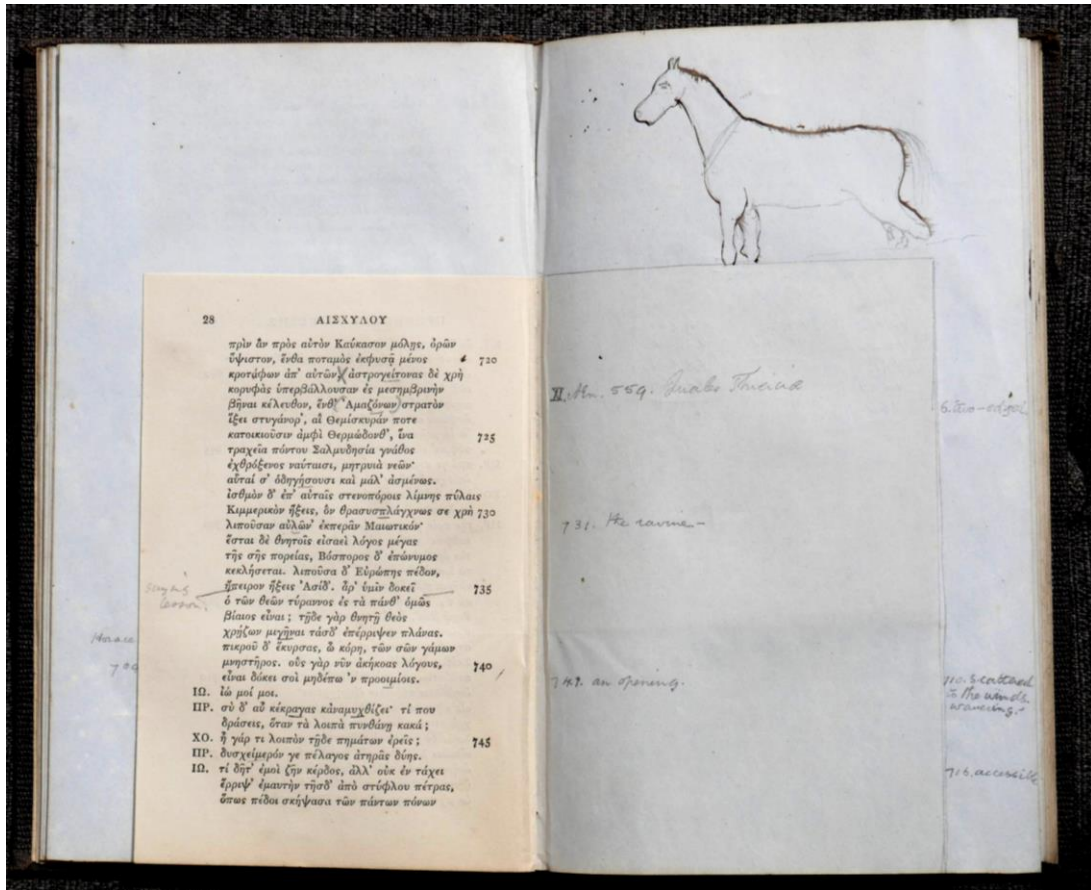 28 ΑΙΣΧΥΛΟΥ
πρὶν ἂν πρὸς αὐτὸν Καύκασον μόλῃς, ὀρῶν
ὕψιστον, ἔνθα ποταμὸς ἐκφυσᾷ μένος 720
κροτάφων ἀπ' αὐτῶν ἀστρογείτονας δὲ χρὴ
κορυφὰς ὑπερβάλλουσαν ἐς μεσημβρινὴν
βῆναι κέλευθον, ἔνθ' Ἀμαζόνων στρατὸν
ἵξει στυγάνορ', αἳ Θεμίσκυράν ποτε
κατοικιοῦσιν ἀμφὶ Θερμώδονθ', ἵνα 725
τραχεῖα πόντου Σαλμυδησία γνάθος
ἐχθρόξενος ναύταισι, μητρυιὰ νεῶν·
αὗταί σ' ὁδηγήσουσι καὶ μάλ' ἀσμένως.
ἰσθμὸν δ' ἐπ' αὐταῖς στενοπόροις λίμνης πύλαις
Κιμμερικὸν ἥξεις, ὃν θρασυσπλάγχνως σε χρὴ 730
λιποῦσαν αὐλῶν' ἐκπερᾶν Μαιωτικόν·
ἔσται δὲ θνητοῖς εἰσαεὶ λόγος μέγας
τῆς σῆς πορείας, Βόσπορος δ' ἐπώνυμος
κεκλήσεται. λιποῦσα δ' Εὐρώπης πέδον,
ἤπειρον ἥξεις Ἀσίδ'. ἆρ' ὑμῖν δοκεῖ 735
ὁ τῶν θεῶν τύραννος ἐς τὰ πάνθ' ὁμῶς
βίαιος εἶναι; τῇδε γὰρ θνητῇ θεὸς
χρῄζων μιγῆναι τάσδ' ἐπέρριψεν πλάνας.
πικροῦ δ' ἔκυρσας, ὦ κόρη, τῶν σῶν γάμων
μνηστῆρος. οὓς γὰρ νῦν ἀκήκοας λόγους, 740
εἶναι δόκει σοὶ μηδέπω 'ν προοιμίοις.
ΙΩ. ἰώ μοί μοι.
ΠΡ. σὺ δ' αὖ κέκραγας κἀναμυχθίζει· τί που
δράσεις, ὅταν τὰ λοιπὰ πυνθάνῃ κακά;
ΧΟ. ἦ γάρ τι λοιπὸν τῇδε πημάτων ἐρεῖς; 745
ΠΡ. δυσχείμερόν γε πέλαγος ἀτηρᾶς δύης.
ΙΩ. τί δῆτ' ἐμοὶ ζῆν κέρδος, ἀλλ' οὐκ ἐν τάχει
ἔρριψ' ἐμαυτὴν τῆσδ' ἀπὸ στύφλου πέτρας,
ὅπως πέδοι σκήψασα τῶν πάντων πόνων
Horace
XI. Æn. 559.
731. the ravine-
741. an opening.
710. Scattered
to the winds.
wavering.
716. accessible